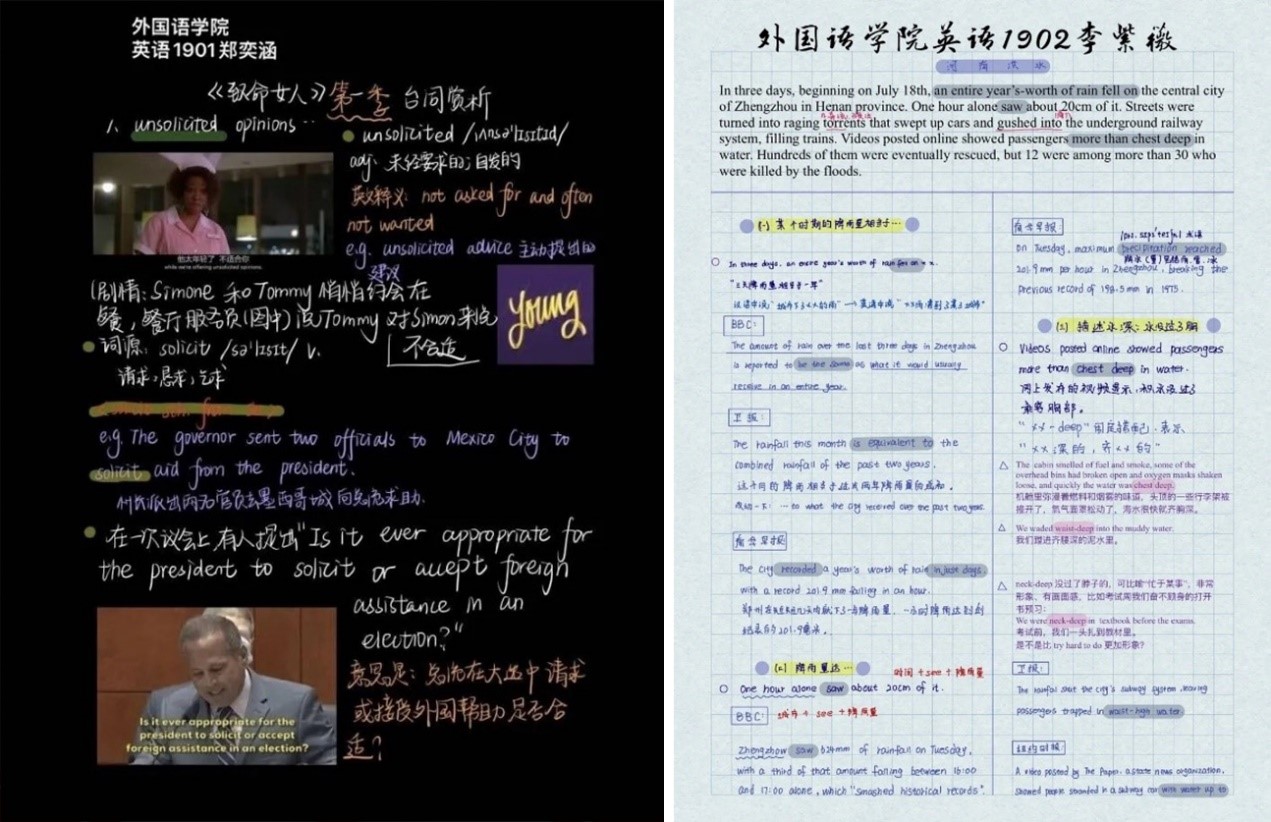 外国语学院
英语1901郑奕涵
《致命女人》第一季 台词赏析
1、unsolicited opinions
unsolicited /ˌʌnsəˈlɪsɪtɪd/
adj. 未经要求的；自发的
英文释义：not asked for and often
not wanted
e.g. unsolicited advice 主动提出的
建议
他太年轻了 不适合你
while we're offering unsolicited opinions.
young
（剧情：Simone 和 Tommy 悄悄约会在
餐厅服务员（图中）说Tommy 对Simon来说
不合适
词源：solicit /səˈlɪsɪt/ v.
请求，恳求，乞求
e.g. The governor sent two officials to Mexico City to
solicit aid from the president.
州长派出两名官员去墨西哥城向总统求助.
在一次议会上，有人提出"Is it ever appropriate for
the president to solicit or accept foreign
assistance in an
election?"
意思是：总统在大选中请求
或接受外国帮助是否合
适？
Is it ever appropriate for the
president to solicit or accept
foreign assistance in an election?
外国语学院英语1902李紫薇
河南洪水
In three days, beginning on July 18th, an entire year's-worth of rain fell on the central city
of Zhengzhou in Henan province. One hour alone saw about 20cm of it. Streets were
turned into raging torrents that swept up cars and gushed into the underground railway
system, filling trains. Videos posted online showed passengers more than chest deep in
water. Hundreds of them were eventually rescued, but 12 were among more than 30 who
were killed by the floods.
(一) 某个时期的降雨量相当于…
In three days, an entire year's worth of rain fell on x x.
"三天降雨量相当于一年"
BBC:
The amount of rain over the last three days in Zhengzhou
is reported to be the same as what it would usually
receive in an entire year.
卫报:
The rainfall this month is equivalent to the
combined rainfall of the past two years.
这个月的降雨量相当于过去两年降雨量的总和.
… to what the city received over the past two years.
南华早报
The city recorded a year's worth of rain in just days,
with a record 201.9 mm falling in an hour.
(二) 降雨量达…
时间 + see + 降雨量
One hour alone saw about 20cm of it.
BBC:
城市 + see + 降雨量
Zhengzhou saw 624mm of rainfall on Tuesday,
with a third of that amount falling between 16:00
and 17:00 alone, which "smashed historical records".
南华早报:
On Tuesday, maximum precipitation reached
201.9 mm per hour in Zhengzhou, breaking the
previous record of 198.5 mm in 1975.
(三) 描述水深：水没过了胸
Videos posted online showed passengers
more than chest deep in water.
网上发布的视频显示，积水没过了
乘客胸部.
"xx-deep"
"xx深的，齐xx的"
The cabin smelled of fuel and smoke, some of the
overhead bins had broken open and oxygen masks shaken
loose, and quickly the water was chest deep.
机舱里弥漫着燃料和烟雾的味道，头顶的一些行李架被
撞开了，氧气面罩松动了，海水很快就齐胸深。
We waded waist-deep into the muddy water.
我们蹚进齐腰深的泥水里。
neck-deep 没过了脖子的，可比喻"忙于某事"，非常
形象、有画面感，比如考试周我们奋不顾身的打开
书预习：
We were neck-deep in textbook before the exams.
考试前，我们一头扎到教材里。
是不是比 try hard to do 更加形象？
卫报:
The rainfall shut the city's subway system, leaving
passengers trapped in waist-high water.
纽约时报:
A video posted by The Paper, a state news organization,
showed people stranded in a subway car with water up to